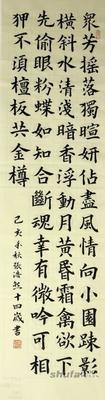 衆芳摇落獨暄妍佔盡風情向小園疎影
橫斜水清淺暗香浮動月黄昏霜禽欲下
先偷眼粉蝶如知合斷魂幸有微吟可相
狎不須檀板共金樽
己亥秋張浩十四歲書